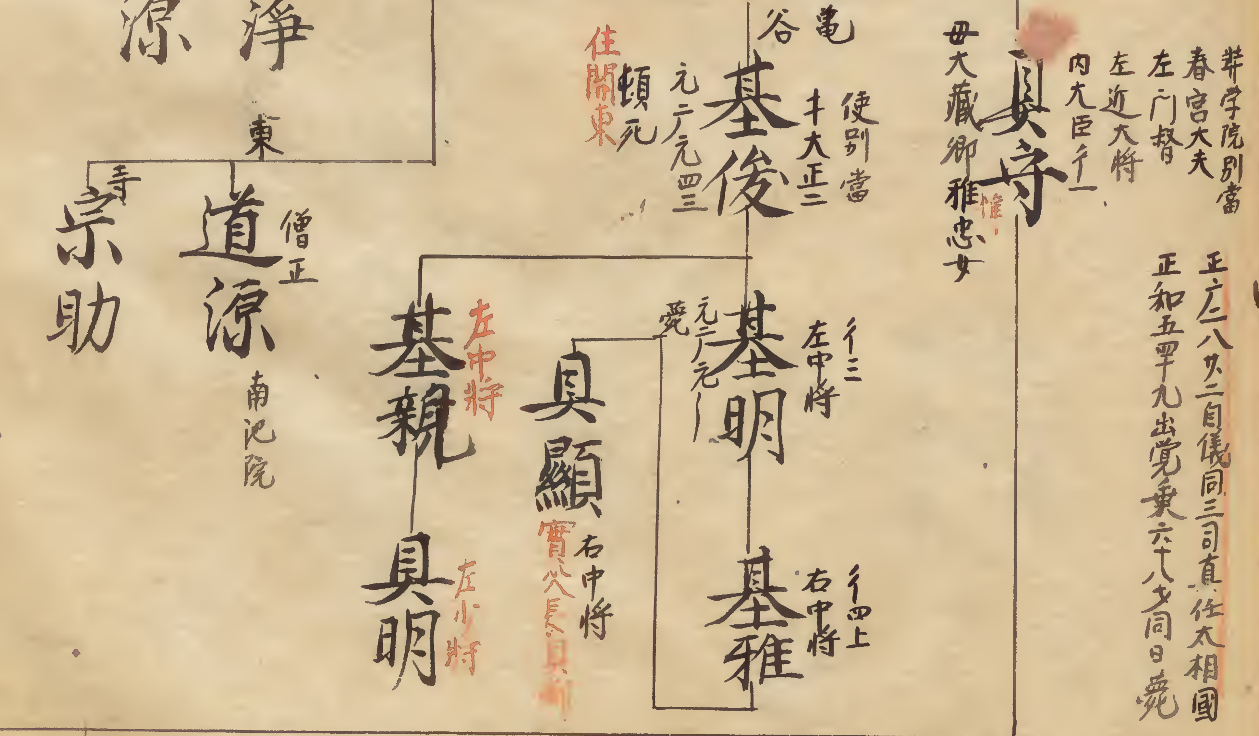 弉学院別當
春宮大夫
左門督
左近大将
内大臣彳一
正广二八廿二自儀同三司直任太相國
正和五四十九出覚乗六十八才同日薨
具守
惟
毋大藏卿雅忠女
亀谷
使別當
大正二
基俊
元广元四三
頓死
住関東
彳三
左中将
基明
元广元
薨
彳四上
右中将
基雅
具顯
右中将
左中將
基親
具明
左少將
淨
源
東
僧正
道源
南池院
寺
宗助